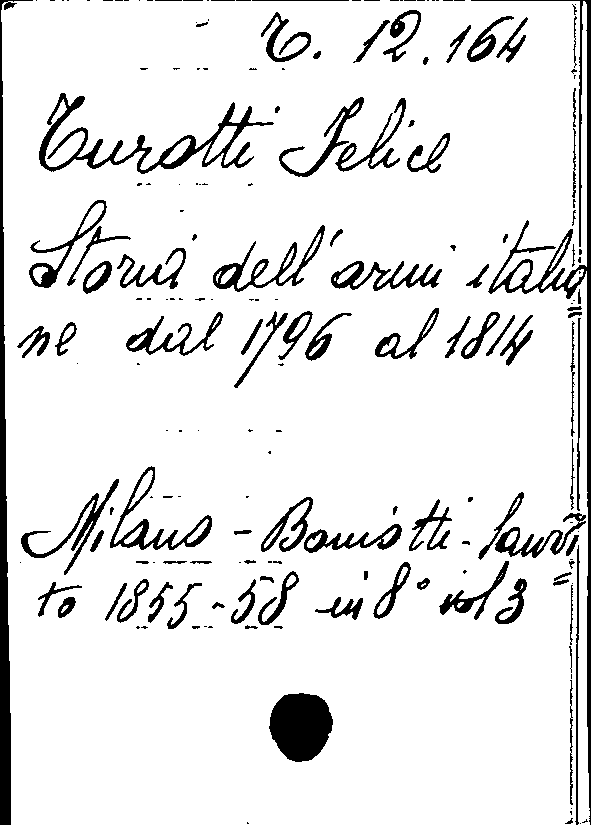 T. 12.164
Turotti Felice
Storia dell'armi italia=
ne dal 1796 al 1814
Milano - Boniotti -
to 1855-58 in 8° vol 3